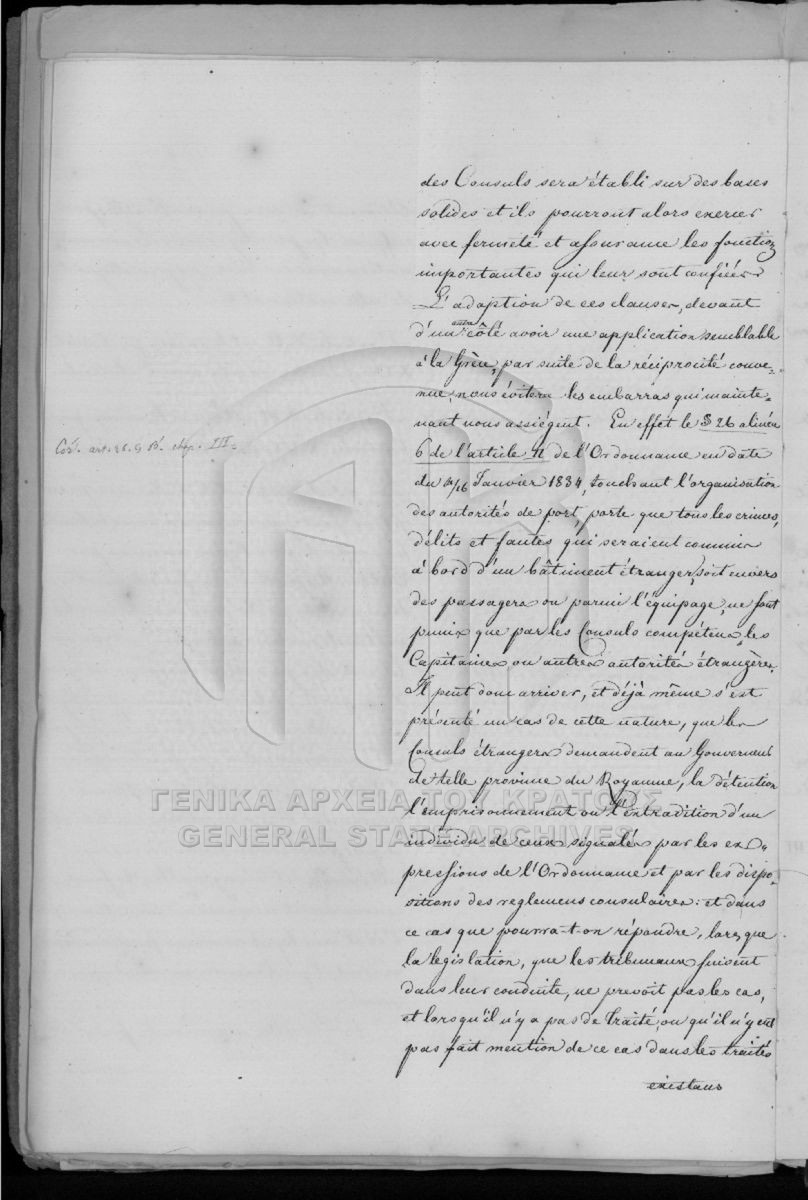 des Consuls sera établi sur des bases
solides et ils pourront alors exercer
avec fermeté et assurance les fonctions
importantes qui leur sont confiées.
L'adoption de ces clauses, devant
d'un autre côté avoir une application semblable
à la Grèce, par suite de la réciprocité conve-
nue, nous évitera les embarras qui mainte-
nant nous assiégent. En effet le § 26 alinéa
6 de l'article 11 de l'Ordonnance en date
Cos. art. 26. § B. chp. III.
du /26 Janvier 1834, touchant l'organisation
des autorités de port, porte que tous les crimes,
délits et fautes qui seraient commis
à bord d'un bâtiment étranger, soit envers
des passagers ou parmi l'équipage, ne sont
punis que par les Consuls compétens, les
Capitaines ou autres autorités étrangères.
Il peut donc arriver, et déjà même s'est
présenté un cas de cette nature, que les
Consuls étrangers demandent au Gouverneur
de telle province du Royaume, la détention
l'emprisonnement ou l'extradition d'un
ΓΕΝΙΚΑ ΑΡΧΕΙΑ ΤΟΥ ΚΡΑΤΟΥΣ
GENERAL STATE ARCHIVES
individu de ceux signalés par les ex-
pressions de l'Ordonnance et par les dispo-
sitions des reglemens consulaires: et dans
ce cas que pourra-t-on répondre, lorsque
la législation, que les tribunaux suivent
dans leur conduite, ne prevoit pas les cas,
et lorsqu'il n'y a pas de traité, ou qu'il n'y est
pas fait mention de ce cas dans les traités
existans